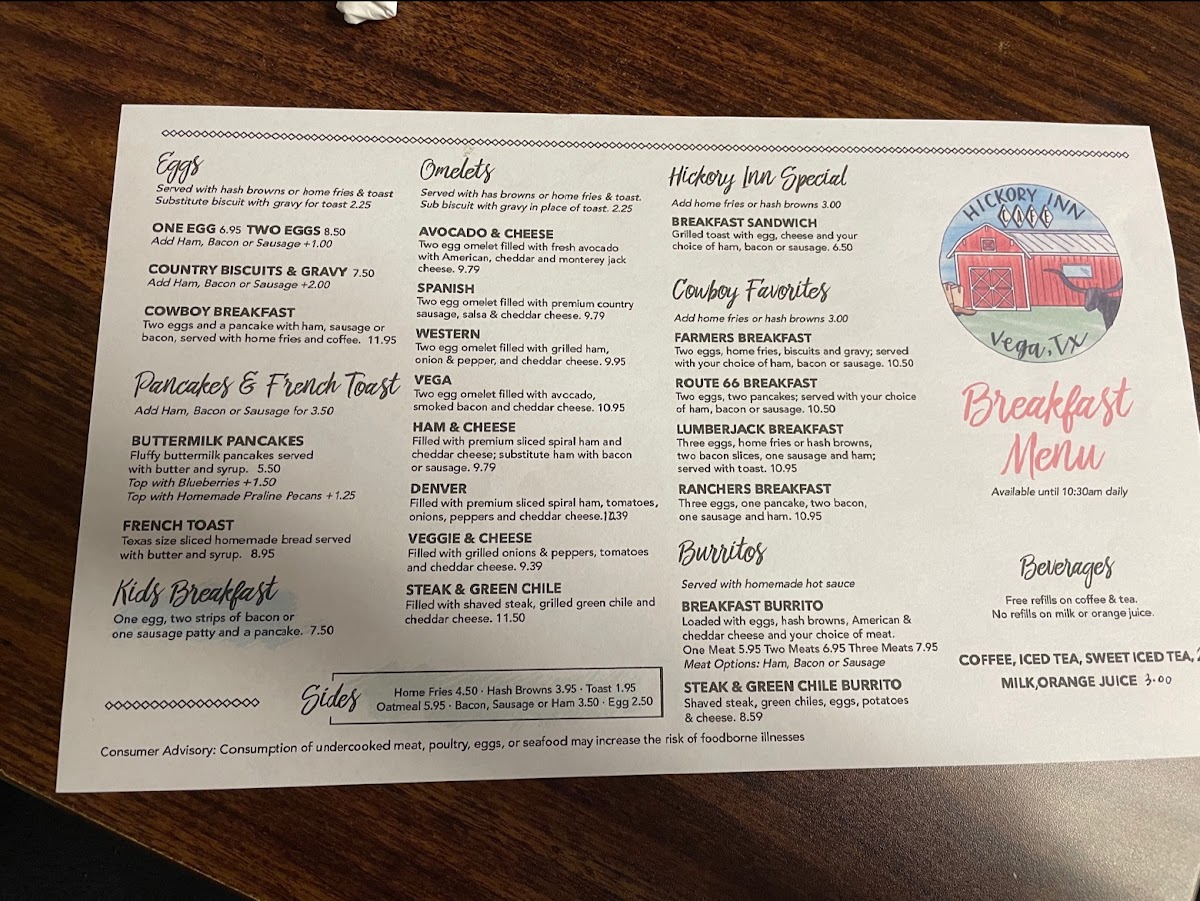 Eggs
Served with hash browns or home fries & toast
Substitute biscuit with gravy for toast 2.25
ONE EGG 6.95 TWO EGGS 8.50
Add Ham, Bacon or Sausage +1.00
COUNTRY BISCUITS & GRAVY 7.50
Add Ham, Bacon or Sausage +2.00
COWBOY BREAKFAST
Two eggs and a pancake with ham, sausage or
bacon, served with home fries and coffee. 11.95
Pancakes & French Toast
Add Ham, Bacon or Sausage for 3.50
BUTTERMILK PANCAKES
Fluffy buttermilk pancakes served
with butter and syrup. 5.50
Top with Blueberries +1.50
Top with Homemade Praline Pecans +1.25
FRENCH TOAST
Texas size sliced homemade bread served
with butter and syrup. 8.95
Kids Breakfast
One egg, two strips of bacon or
one sausage patty and a pancake. 7.50
Omelets
Served with has browns or home fries & toast.
Sub biscuit with gravy in place of toast. 2.25
AVOCADO & CHEESE
Two egg omelet filled with fresh avocado
with American, cheddar and monterey jack
cheese. 9.79
SPANISH
Two egg omelet filled with premium country
sausage, salsa & cheddar cheese. 9.79
WESTERN
Two egg omelet filled with grilled ham,
onion & pepper, and cheddar cheese. 9.95
VEGA
Two egg omelet filled with avocado,
smoked bacon and cheddar cheese. 10.95
HAM & CHEESE
Filled with premium sliced spiral ham and
cheddar cheese; substitute ham with bacon
or sausage. 9.79
DENVER
Filled with premium sliced spiral ham, tomatoes,
onions, peppers and cheddar cheese.
VEGGIE & CHEESE
Filled with grilled onions & peppers, tomatoes
and cheddar cheese. 9.39
STEAK & GREEN CHILE
Filled with shaved steak, grilled green chile and
cheddar cheese. 11.50
Sides
Home Fries 4.50 · Hash Browns 3.95 · Toast 1.95
Oatmeal 5.95 · Bacon, Sausage or Ham 3.50 · Egg 2.50
Hickory Inn Special
Add home fries or hash browns 3.00
BREAKFAST SANDWICH
Grilled toast with egg, cheese and your
choice of ham, bacon or sausage. 6.50
Cowboy Favorites
Add home fries or hash browns 3.00
FARMERS BREAKFAST
Two eggs, home fries, biscuits and gravy; served
with your choice of ham, bacon or sausage. 10.50
ROUTE 66 BREAKFAST
Two eggs, two pancakes; served with your choice
of ham, bacon or sausage. 10.50
LUMBERJACK BREAKFAST
Three eggs, home fries or hash browns,
two bacon slices, one sausage and ham;
served with toast. 10.95
RANCHERS BREAKFAST
Three eggs, one pancake, two bacon,
one sausage and ham. 10.95
Burritos
Served with homemade hot sauce
BREAKFAST BURRITO
Loaded with eggs, hash browns, American &
cheddar cheese and your choice of meat.
One Meat 5.95 Two Meats 6.95 Three Meats 7.95
Meat Options: Ham, Bacon or Sausage
STEAK & GREEN CHILE BURRITO
Shaved steak, green chiles, eggs, potatoes
& cheese. 8.59
HICKORY INN
CAFE
Vega, TX
Breakfast
Menu
Available until 10:30am daily
Beverages
Free refills on coffee & tea.
No refills on milk or orange juice.
COFFEE, ICED TEA, SWEET ICED TEA,
MILK,ORANGE JUICE 3.00
Consumer Advisory: Consumption of undercooked meat, poultry, eggs, or seafood may increase the risk of foodborne illnesses